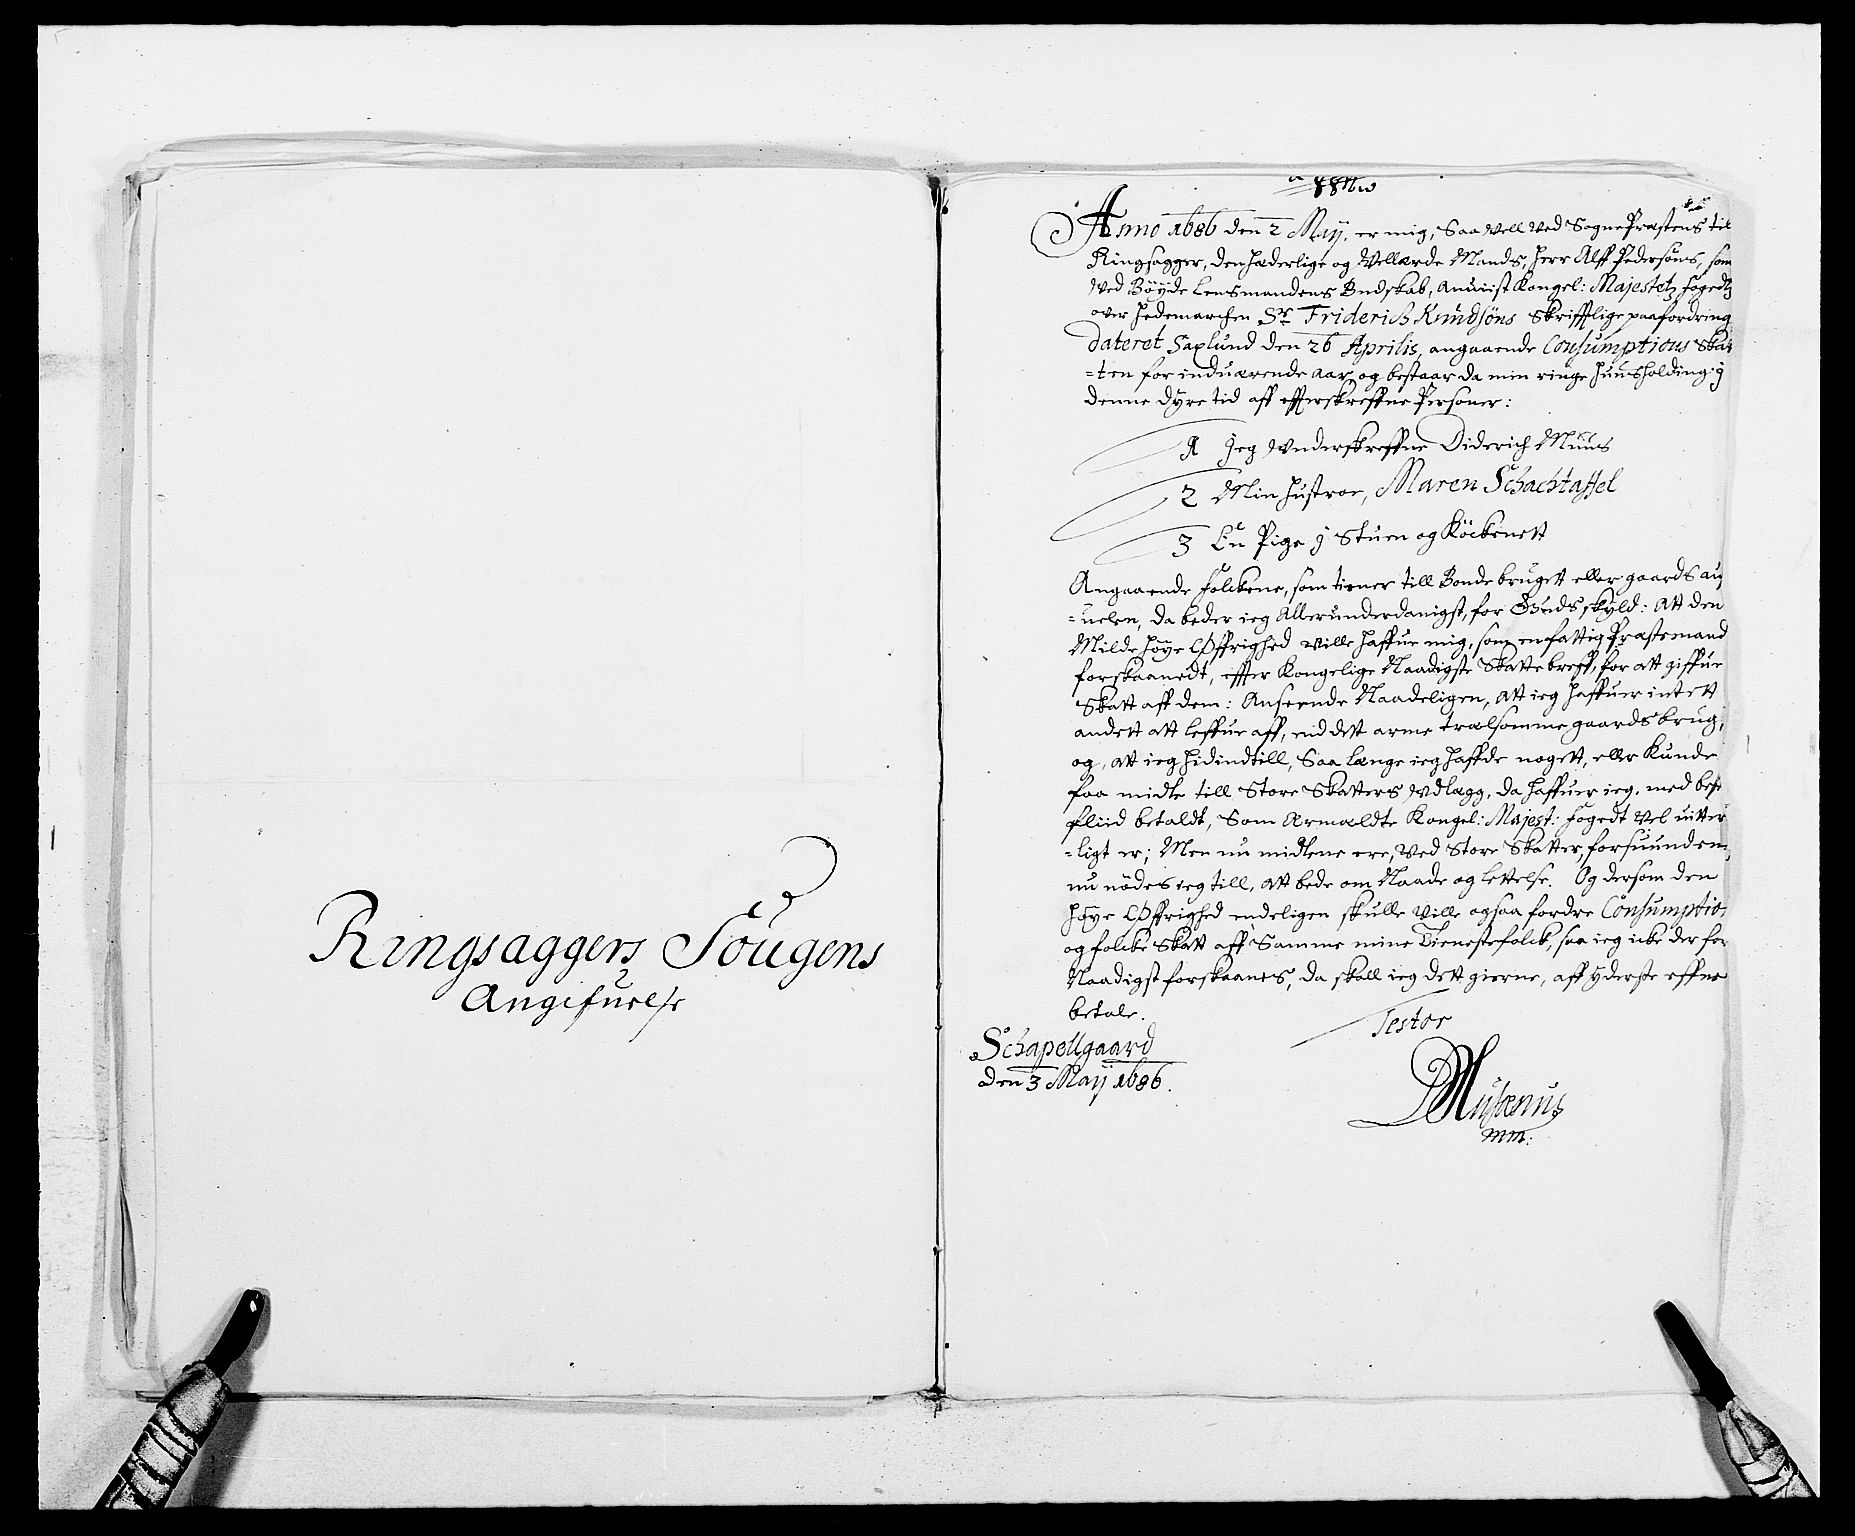 Ringsaggers Sougens
Angifuelse
Anno 1686 den 2 Maij, er mig, Saa vell ved SognePræstens til
Ringsagger, den hæderlige og Vellærde Mands, Herr Alff Pedersøns, som
ved Böyde Lensmandens Budskab, anviist Kongel: Majestetz fogedtz
over Hedemarchen Sr Friderich Knudsöns Skrifftlige paafordring
dateret Saxlund den 26 Aprilis, angaaende Consumptions Skat
=ten for induærende aar, og bestaar da min ringe Huusholding i
denne dyre tid aff effterskreffne Personer:
1 Jeg underskreffne Diderich Muus
2 Min Hustroe, Maren Schachtaffel
3 En Pige i Stuen og Köckenett
Angaaende folckene, som tiener till Bondebrugett eller gaards au
=uelen, da beder ieg Allerunderdanigst, for Guds skyld: Att den
Milde høye Øffrighed ville haffue mig, som en fattig Præstemand
forskaanedt, effter Kongelige Naadigste Skattebreff, for att giffue
Skatt aff dem: Anseende Naadeligen, att ieg haffuer intett
andett att leffue aff, end dett arme trælsomme gaardsbrug,
og, att ieg hidindtill, Saa længe ieg haffde nogett, eller Kunde
faa midle till Store Skatters Udlægg, da haffuer ieg, med best
fliid betaldt, Som Ærmældte Kongel: Majest: fogedt vel uitter
=ligt er; Men nu midlene ere, ved Store Skatter, forsuunden,
nu nödes ieg till, att bede om Naade og lettelse. Og dersom den
høye Øffrighed endeligen skulle ville ogsaa fordre Consumptio
og folcke Skatt aff Samme mine Tienestefolck, saa ieg icke der for
Naadigst forskaanes, da skall ieg dett gierne, aff yderste effne
betale.
Testor
Schapellgaard
den 3 Maij 1686.
DMusænius
mm: